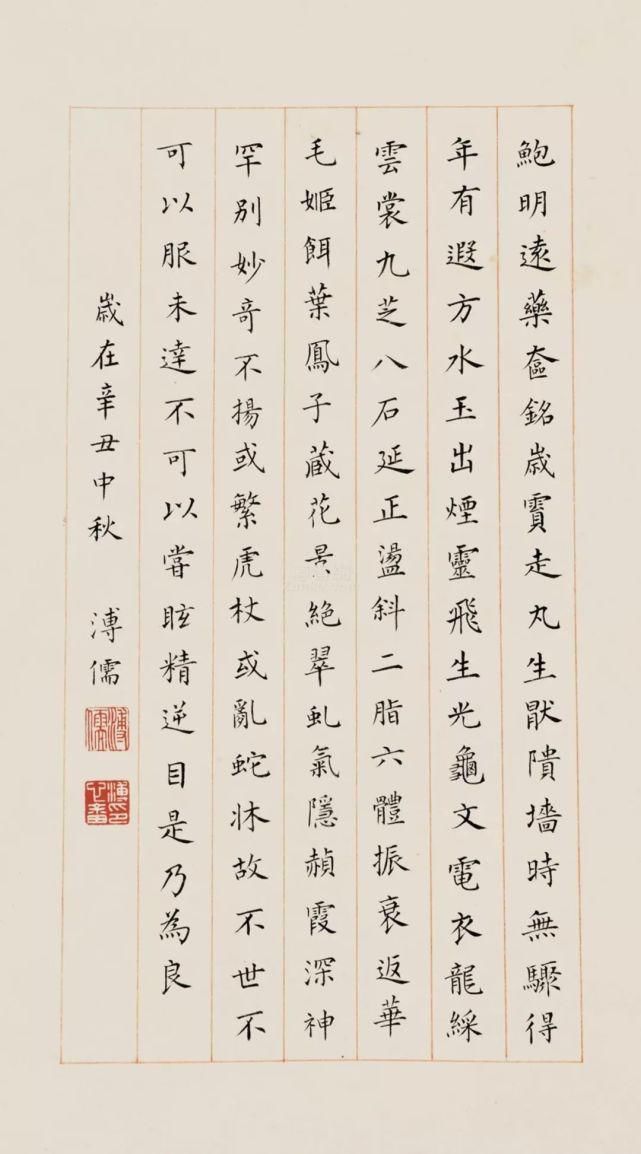 鮑明遠藥奩銘歲霣走丸生猒隤墻時無驟得
年有遐方水玉出煙靈飛生光龜文電衣龍綵
雲裳九芝八石延正盪斜二脂六體振衰返華
毛姬餌葉鳳子蔵花景絕翠虬氣隱赬霞深神
罕別妙奇不揚或繁虎杖或亂蛇牀故不世不
可以服未達不可以嘗眩精逆目是乃為良
歲在辛丑中秋 溥儒
溥儒